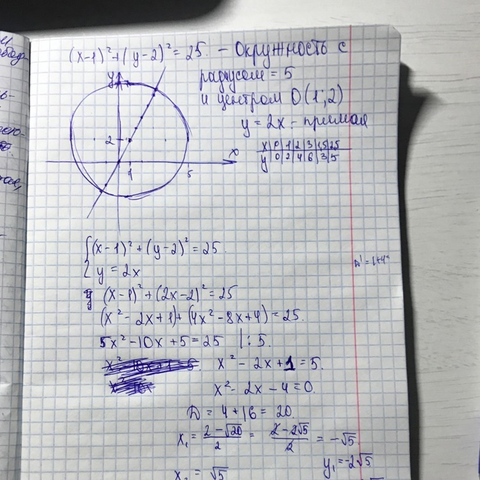 (x-1)²+(y-2)²=25. - Окружность с
радиусом = 5
и центром O(1;2)
y=2x - прямая
x | 0 | 1 | 2 | 3 | 1,5 | 2,5
y | 0 | 2 | 4 | 6 | 3 | 5
y
2
x
1
5
{(x-1)²+(y-2)²=25.
{y=2x
(x-1)²+(2x-2)²=25
(x²-2x+1)+(4x²-8x+4)=25.
5x²-10x+5=25 |:5.
x²-2x+1=5.
x²-2x-4=0.
D=4+16=20
x₁=(2-√20)/2=(2-2√5)/2=-√5
y₁=-2√5
x₂=√5